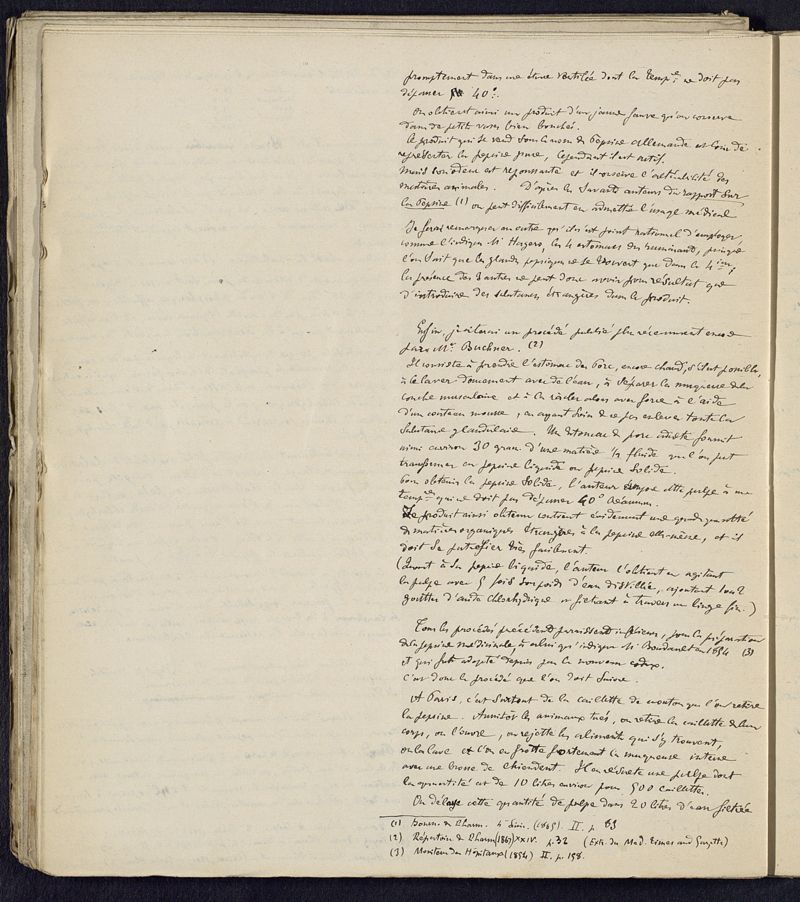 promptement dans une étuve ventilée dont la temp.re ne doit pas
dépasser 40°.
On obtient ainsi un produit d'un jaune fauve qu'on conserve
dans de petits vases bien bouchés.
Le produit qui se vend sous le nom de Pepsine allemande est loin de
représenter la pepsine pure, cependant il est actif.
mais son odeur est repoussante et il conserve l'altérabilité des
matières animales. D'après les savants auteurs du rapport sur
la Pepsine (1) on peut difficilement en admettre l'usage médical
Je ferai remarquer en outre qu'il n'est point rationnel d'employer
comme l'indique Mr les 4 estomacs des ruminants, puisque
l'on sait que les glandes pepsiques ne se trouvent que dans le 4ime,
la présence des 3 autres ne peut donc avoir pour résultat que
d'introduire des substances étrangères dans le produit.
Enfin, je citerai un procédé publié plus récemment encore
par Mr. Buchner. (2)
Il consiste à prendre l'estomac du Porc, encore chaud, s'il est possible,
à le laver doucement avec de l'eau, à séparer la muqueuse de la
couche musculaire et à la râcler alors avec force à l'aide
d'un couteau mousse, en ayant soin de ne pas enlever toute la
substance glandulaire. Un estomac de porc adulte fournit
ainsi environ 30 gram. d'une matière 1/2 fluide que l'on peut
transformer en pepsine liquide ou pepsine solide.
Pour obtenir la pepsine solide, l'auteur expose cette pulpe à une
temp.re qui ne doit pas dépasser 40° Réaumur.
Le produit ainsi obtenu contient évidemment une grande quantité
de matières organiques étrangères à la pepsine elle-même, et il
doit se putréfier très facilement.
(Quant à sa pepsine liquide, l'auteur l'obtient en agitant
la pulpe avec 5 fois son poids d'eau distillée, ajoutant 1 ou 2
gouttes d'acide chlorhydrique et filtrant à travers un linge fin.)
Tous les procédés précédents paraissent inférieurs, pour la préparation
de la pepsine médicinale, à celui qu'indique Mr Boudault en 1854 (3)
et qui fut adopté depuis par le nouveau codex.
c'est donc le procédé que l'on doit suivre.
A Paris, c'est surtout de la caillette de mouton que l'on retire
la pepsine. Aussitôt les animaux tués, on retire la caillette de leur
corps, on l'ouvre, on rejette les aliments qui s'y trouvent,
on la lave et l'on en frotte fortement la muqueuse interne
avec une brosse de chiendent. Il en résulte une pulpe dont
la quantité est de 10 litres environ pour 500 caillettes.
On délaye cette quantité de pulpe dans 20 litres d'eau filtrée
(1) Journ. de Pharm. 4e Série. (1865). II. p. 83
(2) Répertoire de Pharm (1867) XXIV. p. 32 (Extr. du Med. Times and Gazette)
(3) Moniteur des Hôpitaux (1854) II. p. 158.